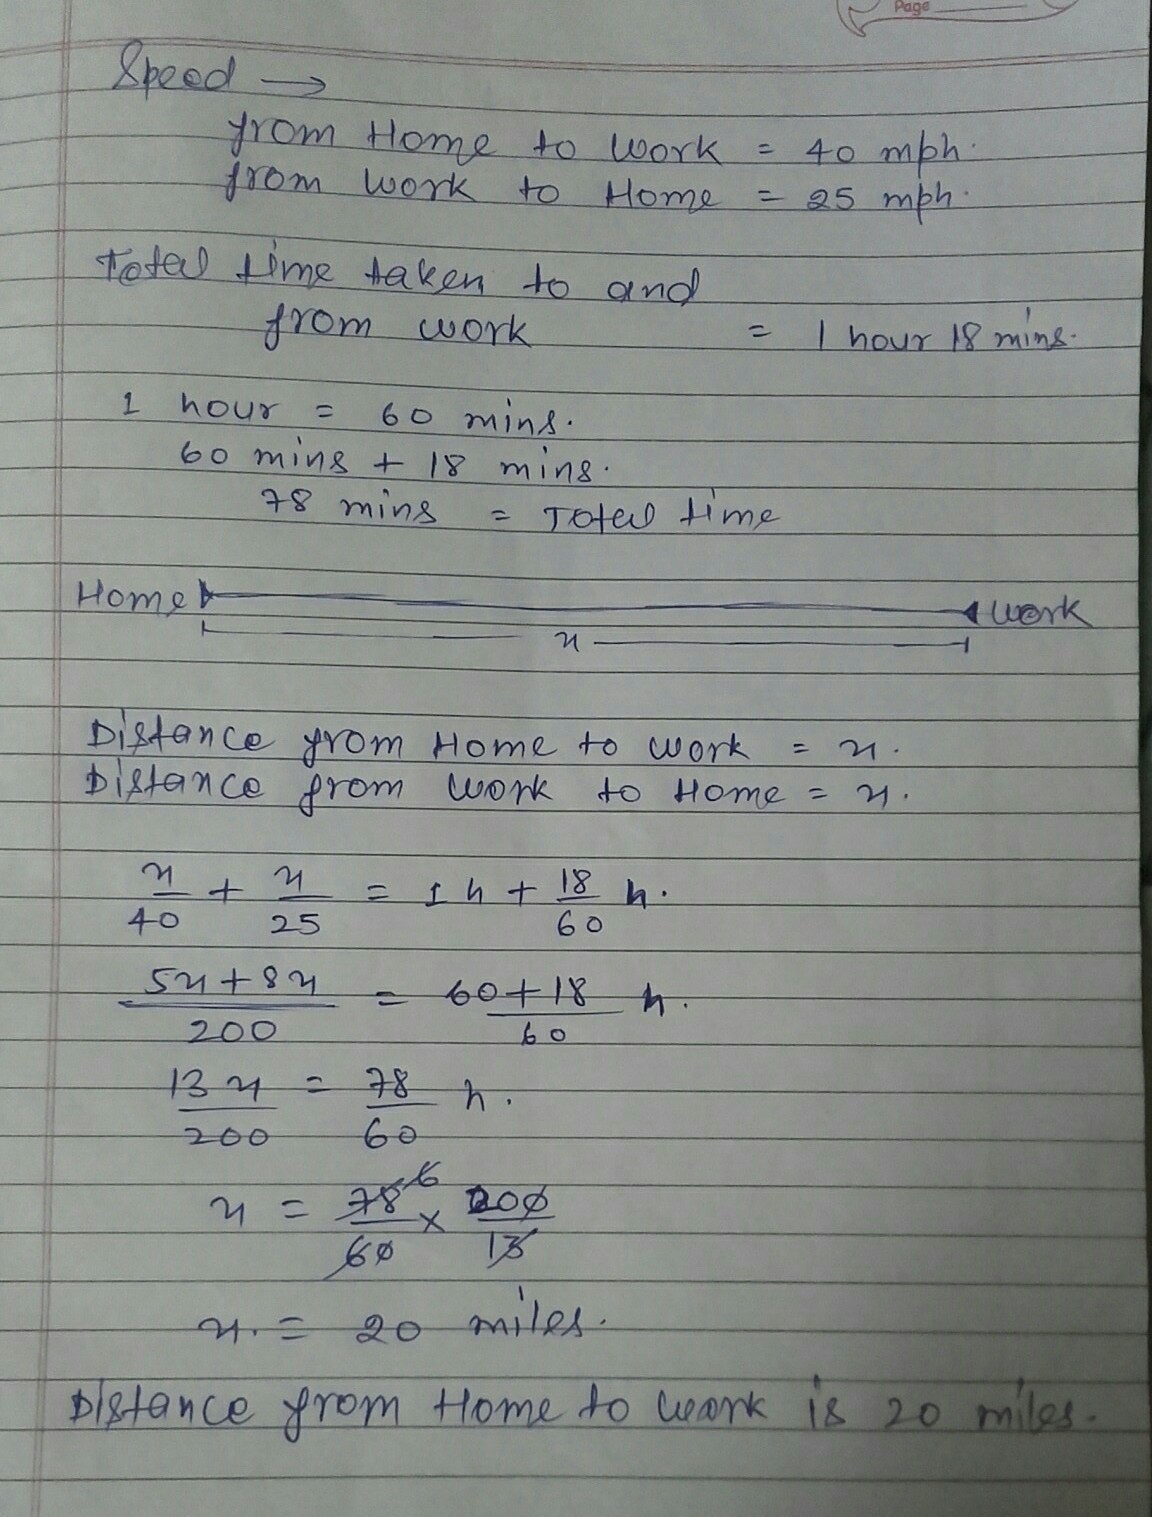 Page
Speed →
from Home to Work = 40 mph.
from Work to Home = 25 mph.
Total time taken to and
from work = 1 hour 18 mins.
1 hour = 60 mins.
60 mins + 18 mins.
78 mins = Total time
Home Work
x
Distance from Home to Work = x.
Distance from Work to Home = x.
x/40 + x/25 = 1 h + 18/60 h.
5x+8x/200 = 60+18/60 h.
13x/200 = 78/60 h.
x = 78 6/60 × 200/13
x. = 20 miles.
Distance from Home to Work is 20 miles.